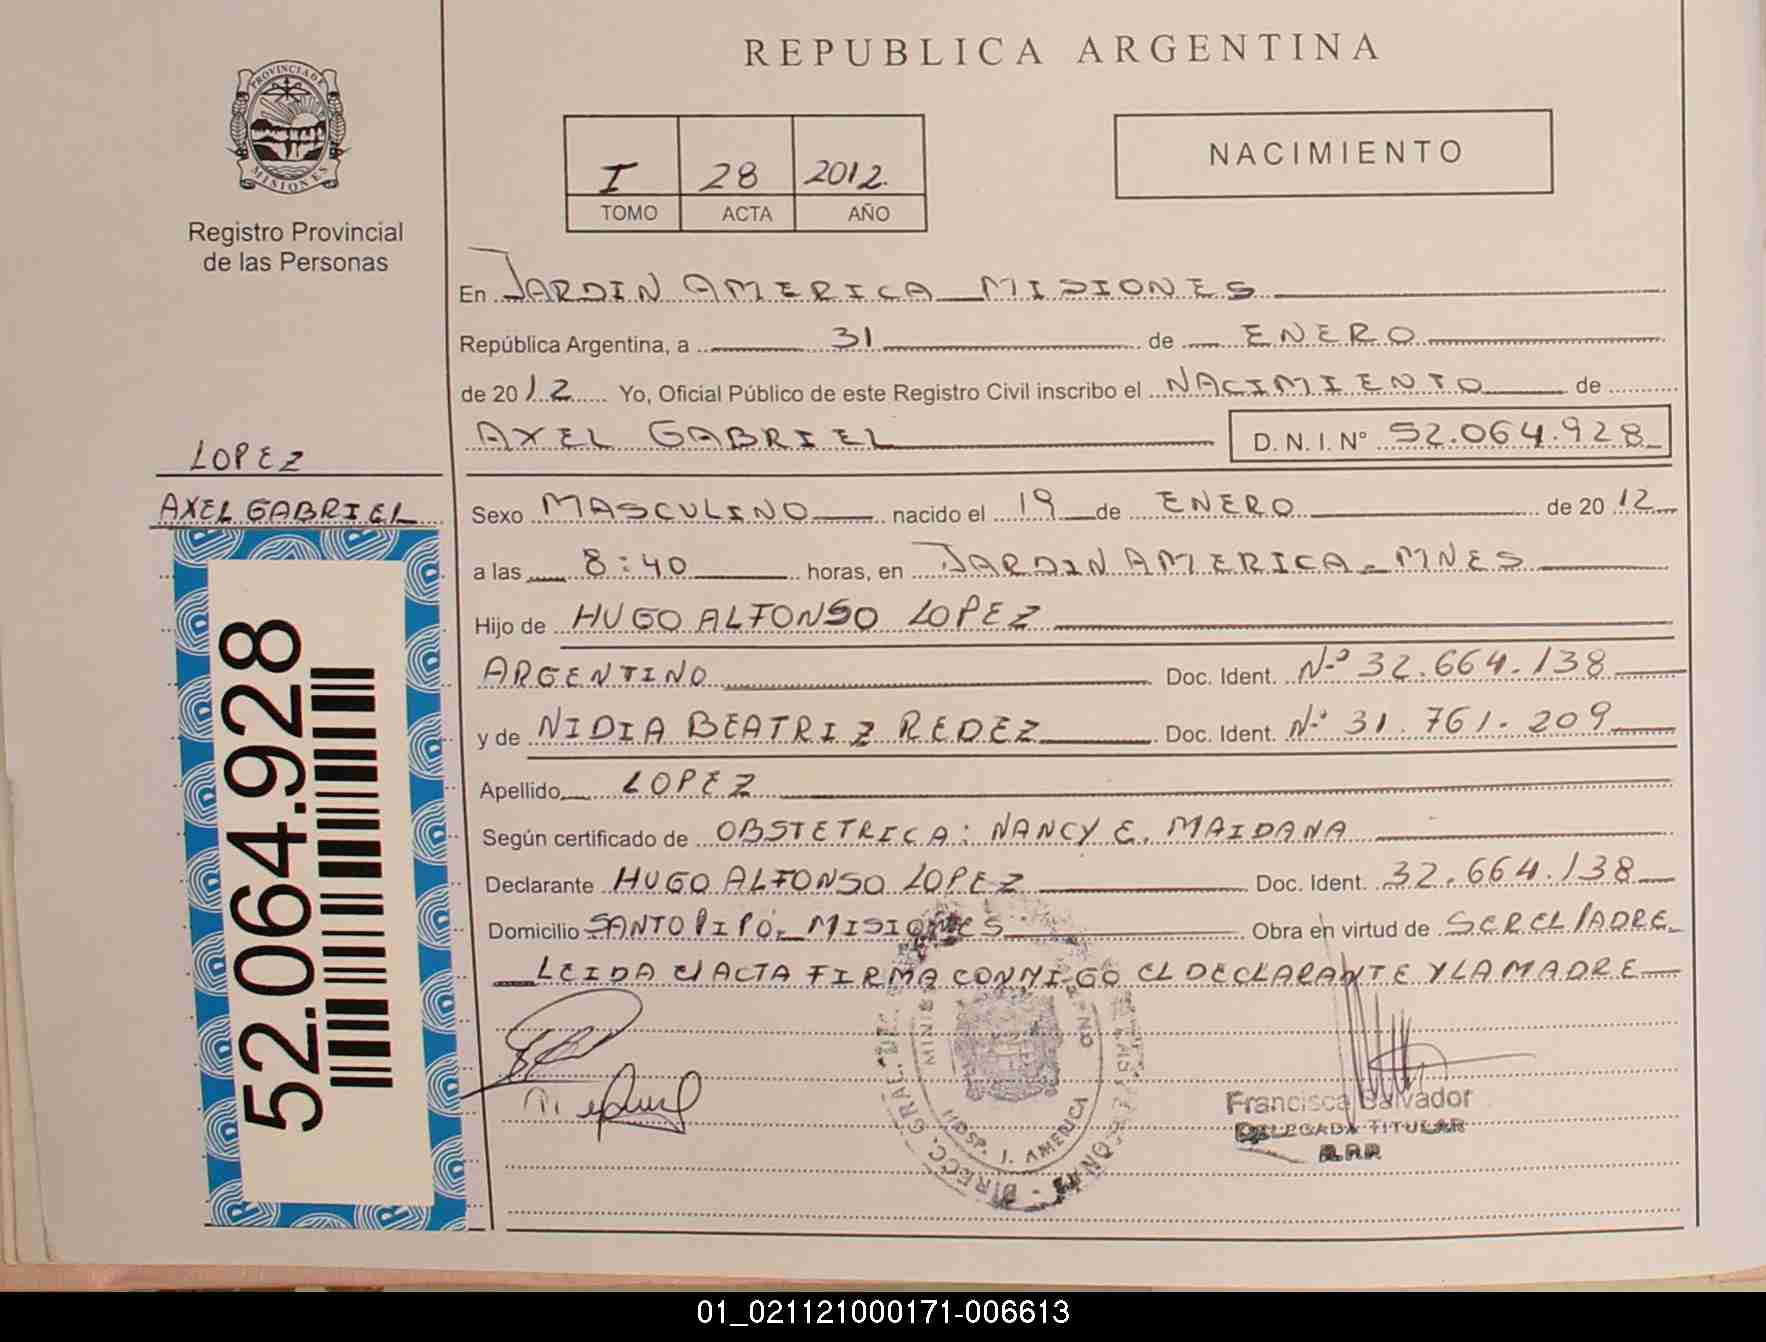 REPUBLICA ARGENTINA
PROVINCIA DE
MISIONES
Registro Provincial
de las Personas
I 28 2012.
TOMO ACTA AÑO
NACIMIENTO
En JARDIN AMERICA MISIONES
República Argentina, a 31 de ENERO
de 2012 Yo, Oficial Público de este Registro Civil inscribo el NACIMIENTO de
AXEL GABRIEL D. N. I. N° 52.064.928
LOPEZ
AXEL GABRIEL
52.064.928
Sexo MASCULINO nacido el 19 de ENERO de 2012
a las 8:40 horas, en JARDIN AMERICA - MNES
Hijo de HUGO ALFONSO LOPEZ
ARGENTINO Doc. Ident. Nº 32.664.138
y de NIDIA BEATRIZ REDEZ Doc. Ident. Nº 31.761.209
Apellido LOPEZ
Según certificado de OBSTETRICA: NANCY E. MAIDANA
Declarante HUGO ALFONSO LOPEZ Doc. Ident. 32.664.138
Domicilio SANTO PIPÓ, MISIONES Obra en virtud de SER EL PADRE
LEIDA el ACTA FIRMA CONMIGO EL DECLARANTE Y LA MADRE
DIRECC. GRAL.
HOSP. J. AMERICA
Francisca Salvador
DELEGADA TITULAR
R.P.P.
01_021121000171-006613